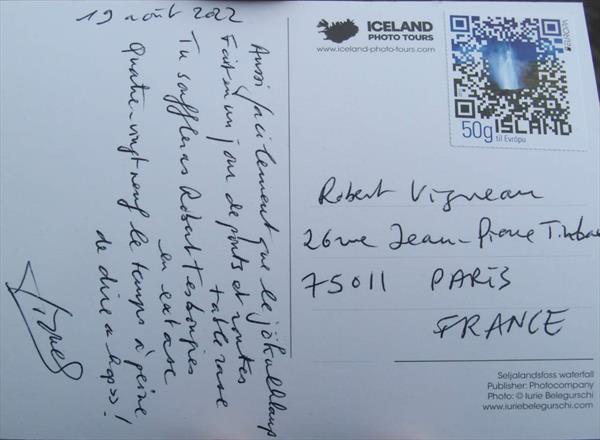 19 août 2022
Aussi facilement que le jökulhlaup
Fait en un jour de ponts et routes
table rase
Tu souffleras Robert tes bougies
en extase
Quatre-vingt neuf le temps à peine
de dire « hop » !
ICELAND
PHOTO TOURS
www.iceland-photo-tours.com
50g
ÍSLAND
til Evrópu
Robert Vigneau
26 rue Jean-Pierre Timbau
75011 PARIS
FRANCE
Seljalandsfoss waterfall
Publisher: Photocompany
Photo: © Iurie Belegurschi
www.iuriebelegurschi.com